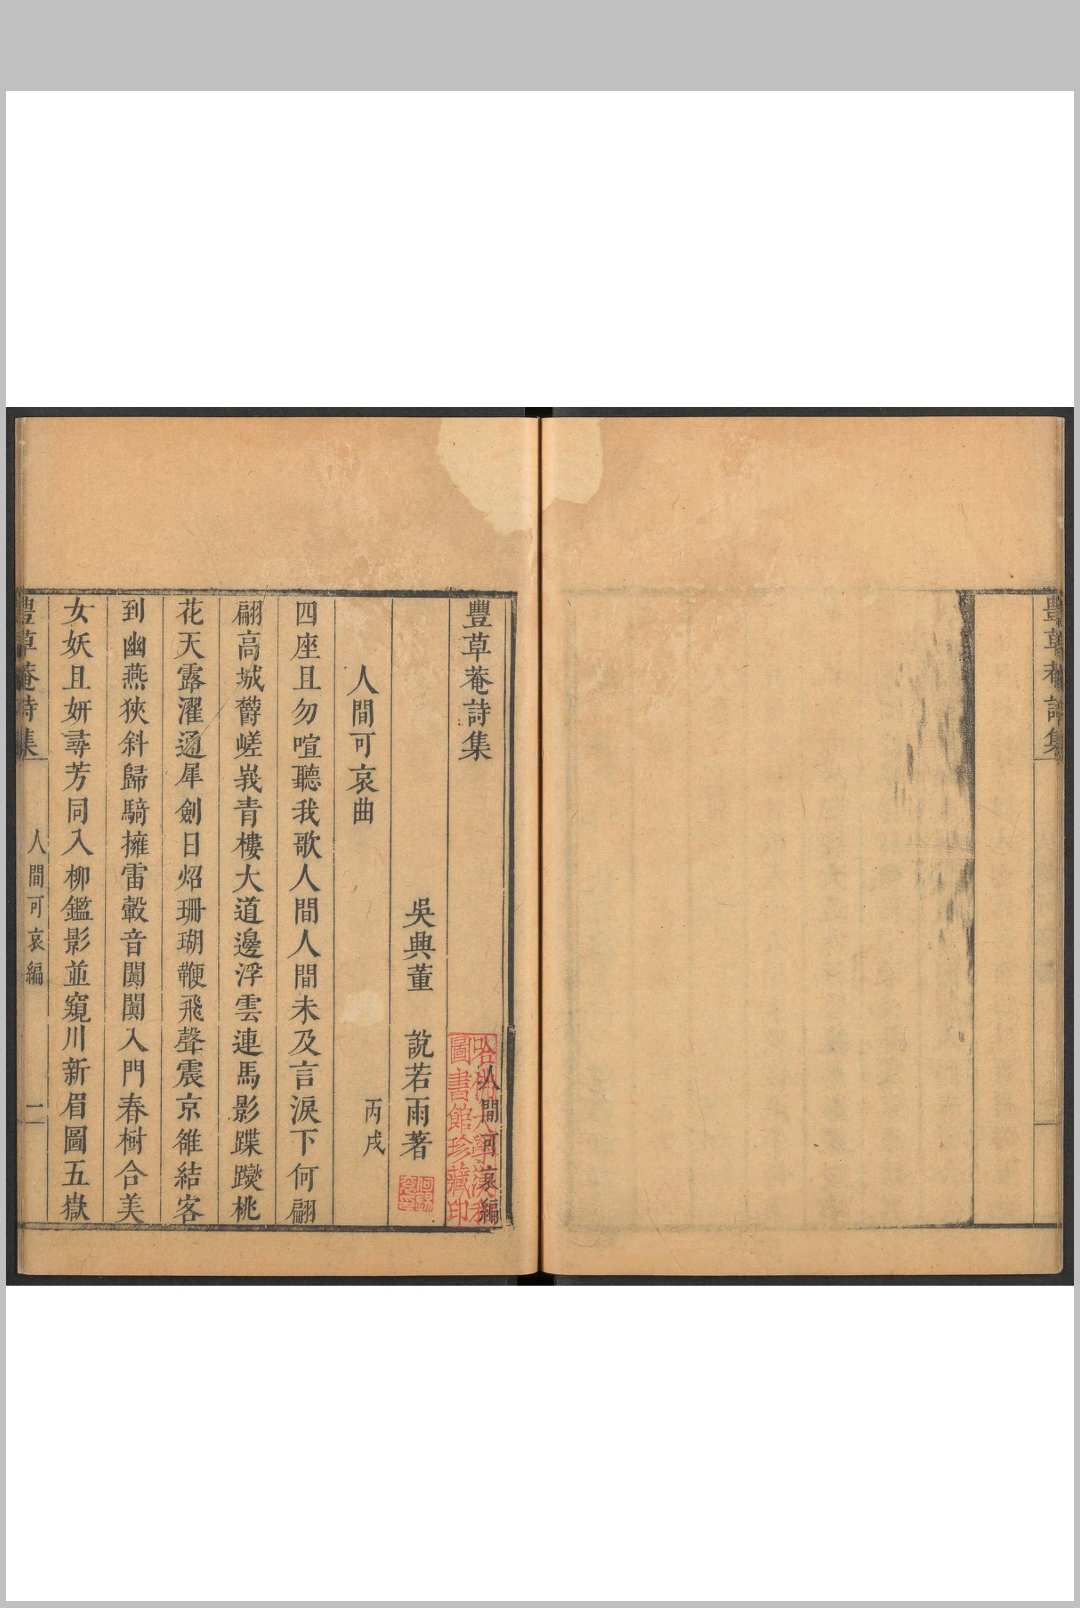 豐草菴詩集
豐草菴詩集
人間可哀編
吳興董　說若雨著
人間可哀曲　丙戌
四座且勿喧聽我歌人間人間未及言淚下何翩
翩高城欝嵯峩青樓大道邊浮雲連馬影蹀躞桃
花天露濯通犀劍日炤珊瑚鞭飛聲震京雒結客
到幽燕狹斜歸騎擁雷轂音闐闐入門春樹合美
女妖且妍尋芳同入柳鑑影並窺川新眉圖五嶽
豐草菴詩集　人間可哀編　一
哈佛大學漢和
圖書館珍藏印